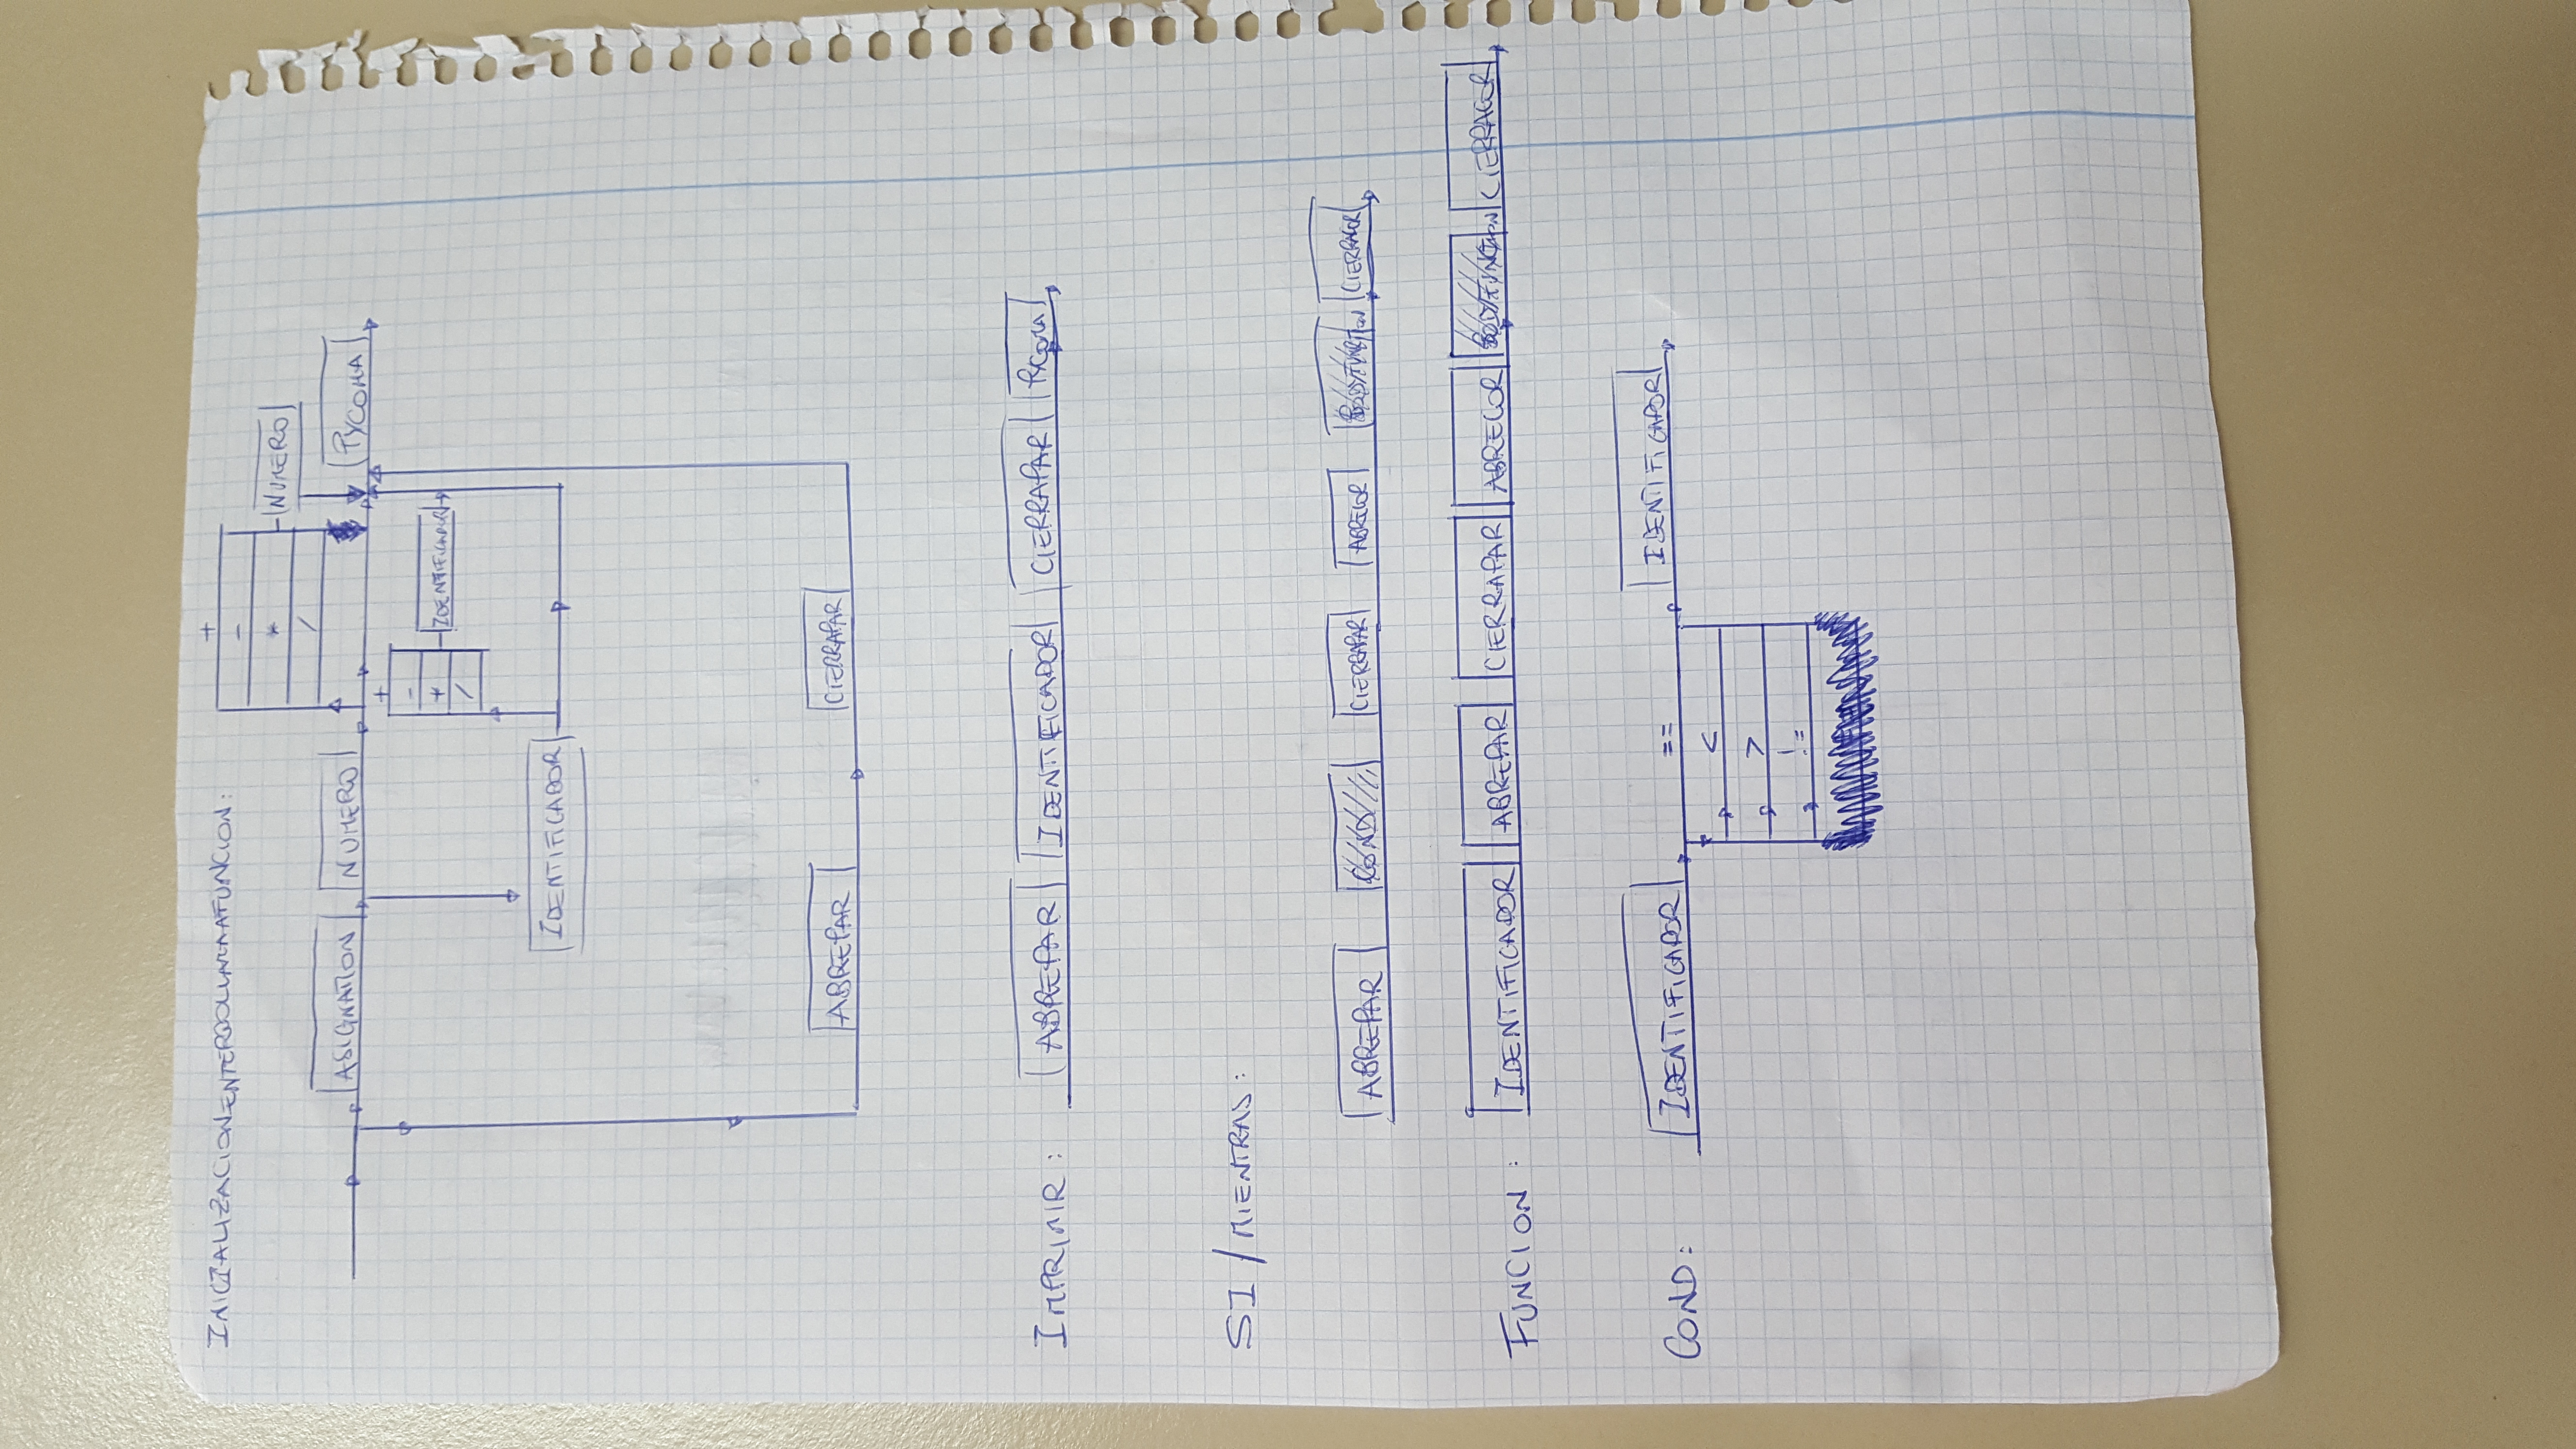 INICIALIZACIONENTEROOLLAMAAFUNCION:
+
-
*
/
NUMERO
ASIGNATION NUMERO PYCOMA
+
-
*
/
IDENTIFICADOR
IDENTIFICADOR
ABREPAR CIERRAPAR
IMPRIMIR: ABREPAR IDENTIFICADOR CIERRAPAR PYCOMA
SI/MIENTRAS:
ABREPAR COND CIERRAPAR ABRECOR BODYFUNCTION CIERRACOR
FUNCION: IDENTIFICADOR ABREPAR CIERRAPAR ABRECOR BODYFUNCTION CIERRACOR
COND: IDENTIFICADOR == IDENTIFICADOR
<
>
!=